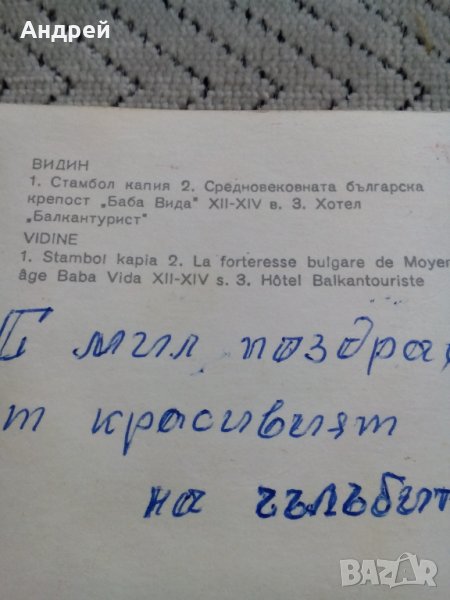 Андрей
ВИДИН
1. Стамбол капия 2. Средновековната българска
крепост „Баба Вида" XII-XIV в. 3. Хотел
„Балкантурист"
VIDINE
1. Stambol kapia 2. La forteresse bulgare de Moyen
âge Baba Vida XII-XIV s. 3. Hôtel Balkantouriste
мил поздра
т красивият
на гълъбит
BAZAR